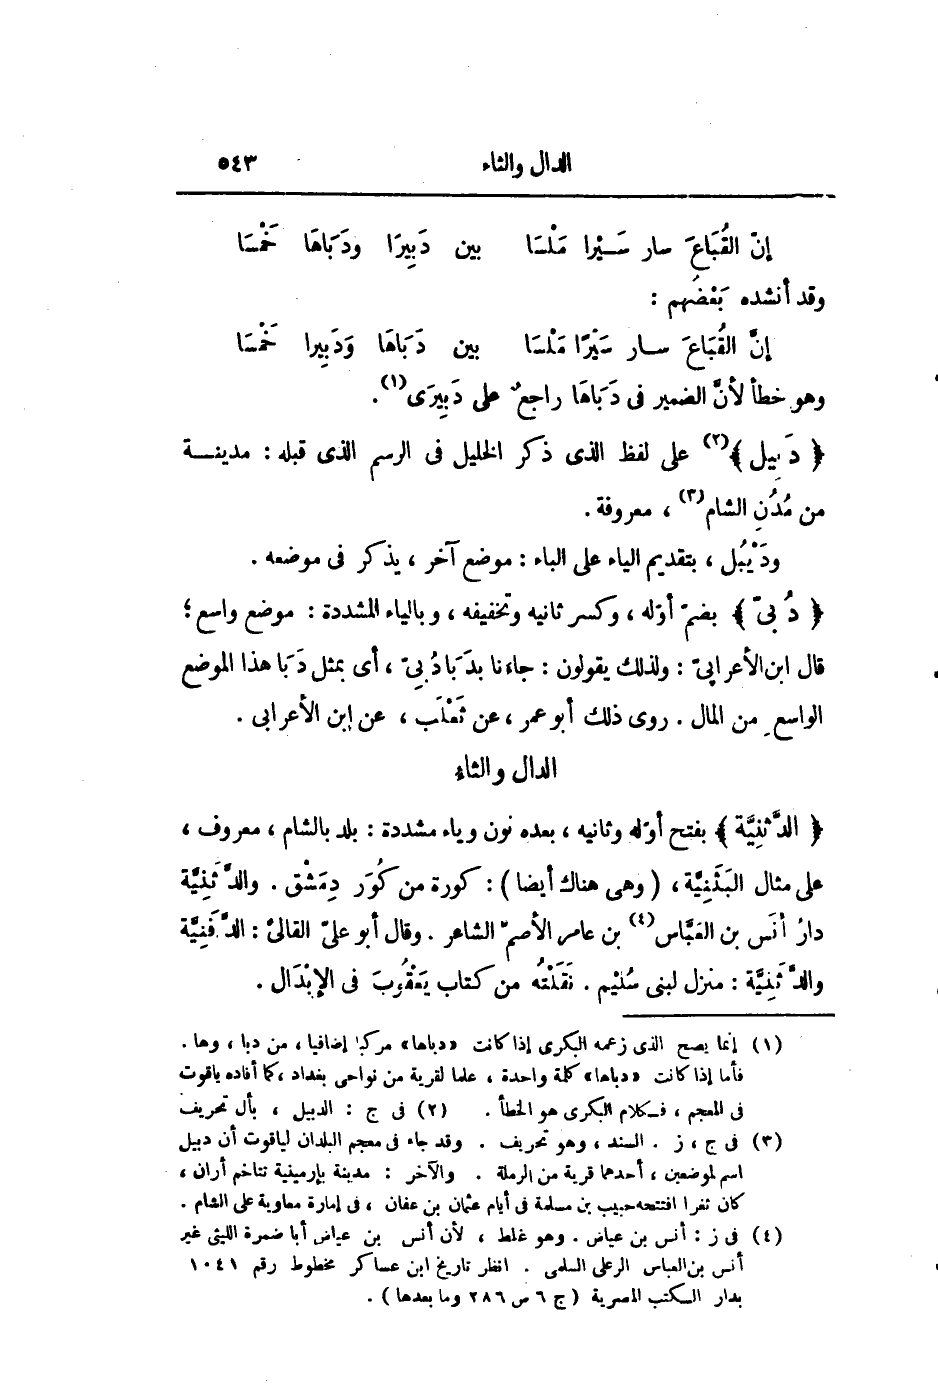 الدال والثاء ٥٤٣
إنّ القُبَاعَ سار سَــيْرا مَلْسَا بين دَبِيرَا ودَبَاهَا خَمْسَا
وقد أنشده بَعْضُهم :
إنَّ القُبَاعَ ســار سَيْرًا مَلْسَا بين دَبَاهَا وَدَبِيرا خَمْسَا
وهو خطأ لأنَّ الضمير فى دَبَاهَا راجعٌ على دَبِيرَى(١).
﴿ دَبِيل ﴾(٢) على لفظ الذى ذكر الخليل فى الرسم الذى قبله : مدينــة
من مُدُنِ الشام(٣) ، معروفة .
ودَيْبُل ، بتقديم الياء على الباء : موضع آخر ، يذكر فى موضعه .
﴿ دُبِىّ ﴾ بضمّ أوّله ، وكسر ثانيه وتخفيفه ، وبالياء المشددة : موضع واسع ؛
قال ابن الأعرابىّ : ولذلك يقولون : جاءنا بدَبَا دُبِىّ ، أى بمثل دَبَا هذا الموضع
الواسع من المال . روى ذلك أبو عمر ، عن ثَعْلَب ، عن ابن الأعرابى .
الدال والثاء
﴿ الدَّثَنِيَّة ﴾ بفتح أوّله وثانيه ، بعده نون وياء مشددة : بلد بالشام ، معروف ،
على مثال البَثَنِيَّة ، ( وهى هناك أيضا ) : كورة من كُوَر دِمَشْق . والدَّثَنِيَّة
دارُ أنَس بن العَبَّاس(٤) بن عامر الأصمّ الشاعر . وقال أبو علىّ القالىُّ : الدَّفَنِيَّة
والدَّثَنِيَّة : منزل لبنى سُلَيْم . نَقَلْتُه من كتاب يَعْقُوبَ فى الإبْدَال .
(١) إنما يصح الذى زعمه البكرى إذا كانت «دباها» مركبا إضافيا ، من دبا ، وها .
فأما إذا كانت «دباها» كلمة واحدة ، علما لقرية من نواحى بغداد ، كما أفاده ياقوت
فى المعجم ، فــكلام البكرى هو الخطأ . (٢) فى ج : الدبيل ، بأل تحريف
(٣) فى ج ، ز . السند ، وهو تحريف . وقد جاء فى معجم البلدان لياقوت أن دبيل
اسم لموضعين ، أحدهما قرية من الرملة . والآخر : مدينة بإرمينية تتاخم أران ،
كان ثغرا افتتحه حبيب بن مسلمة فى أيام عثمان بن عفان ، فى إمارة معاوية على الشام .
(٤) فى ز : أنس بن عياض . وهو غلط ، لأن أنس بن عياض أبا ضمرة الليثى غير
أنس بن العباس الرعلى السلمى . انظر تاريخ ابن عساكر مخطوط رقم ١٠٤١
بدار الـكتب المصرية ( ج ٦ ص ٢٨٦ وما بعدها ) .